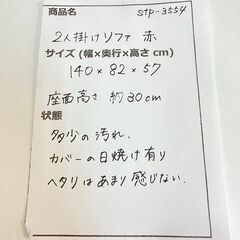 商品名 stp-3554
2人掛けソファ 赤
サイズ(幅×奥行×高さ cm)
140×82×57
座面高さ 約30cm
状態
多少の汚れ、
カバーの日焼け有り
ヘタリはあまり感じない。